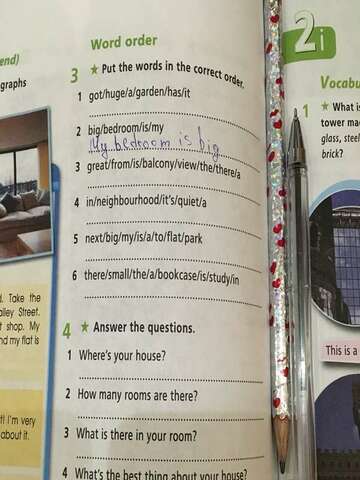 end)
graphs
Word order
3 ★ Put the words in the correct order.
1 got/huge/a/garden/has/it
2 big/bedroom/is/my
My bedroom is big
3 great/from/is/balcony/view/the/there/a
4 in/neighbourhood/it's/quiet/a
5 next/big/my/is/a/to/flat/park
6 there/small/the/a/bookcase/is/study/in
d. Take the
alley Street.
t shop. My
nd my flat is
t! I'm very
about it.
4 ★ Answer the questions.
1 Where's your house?
2 How many rooms are there?
3 What is there in your room?
4 What's the best thing about your house?
2i
Vocabu
1 ★ What is
tower ma
glass, steel
brick?
This is a